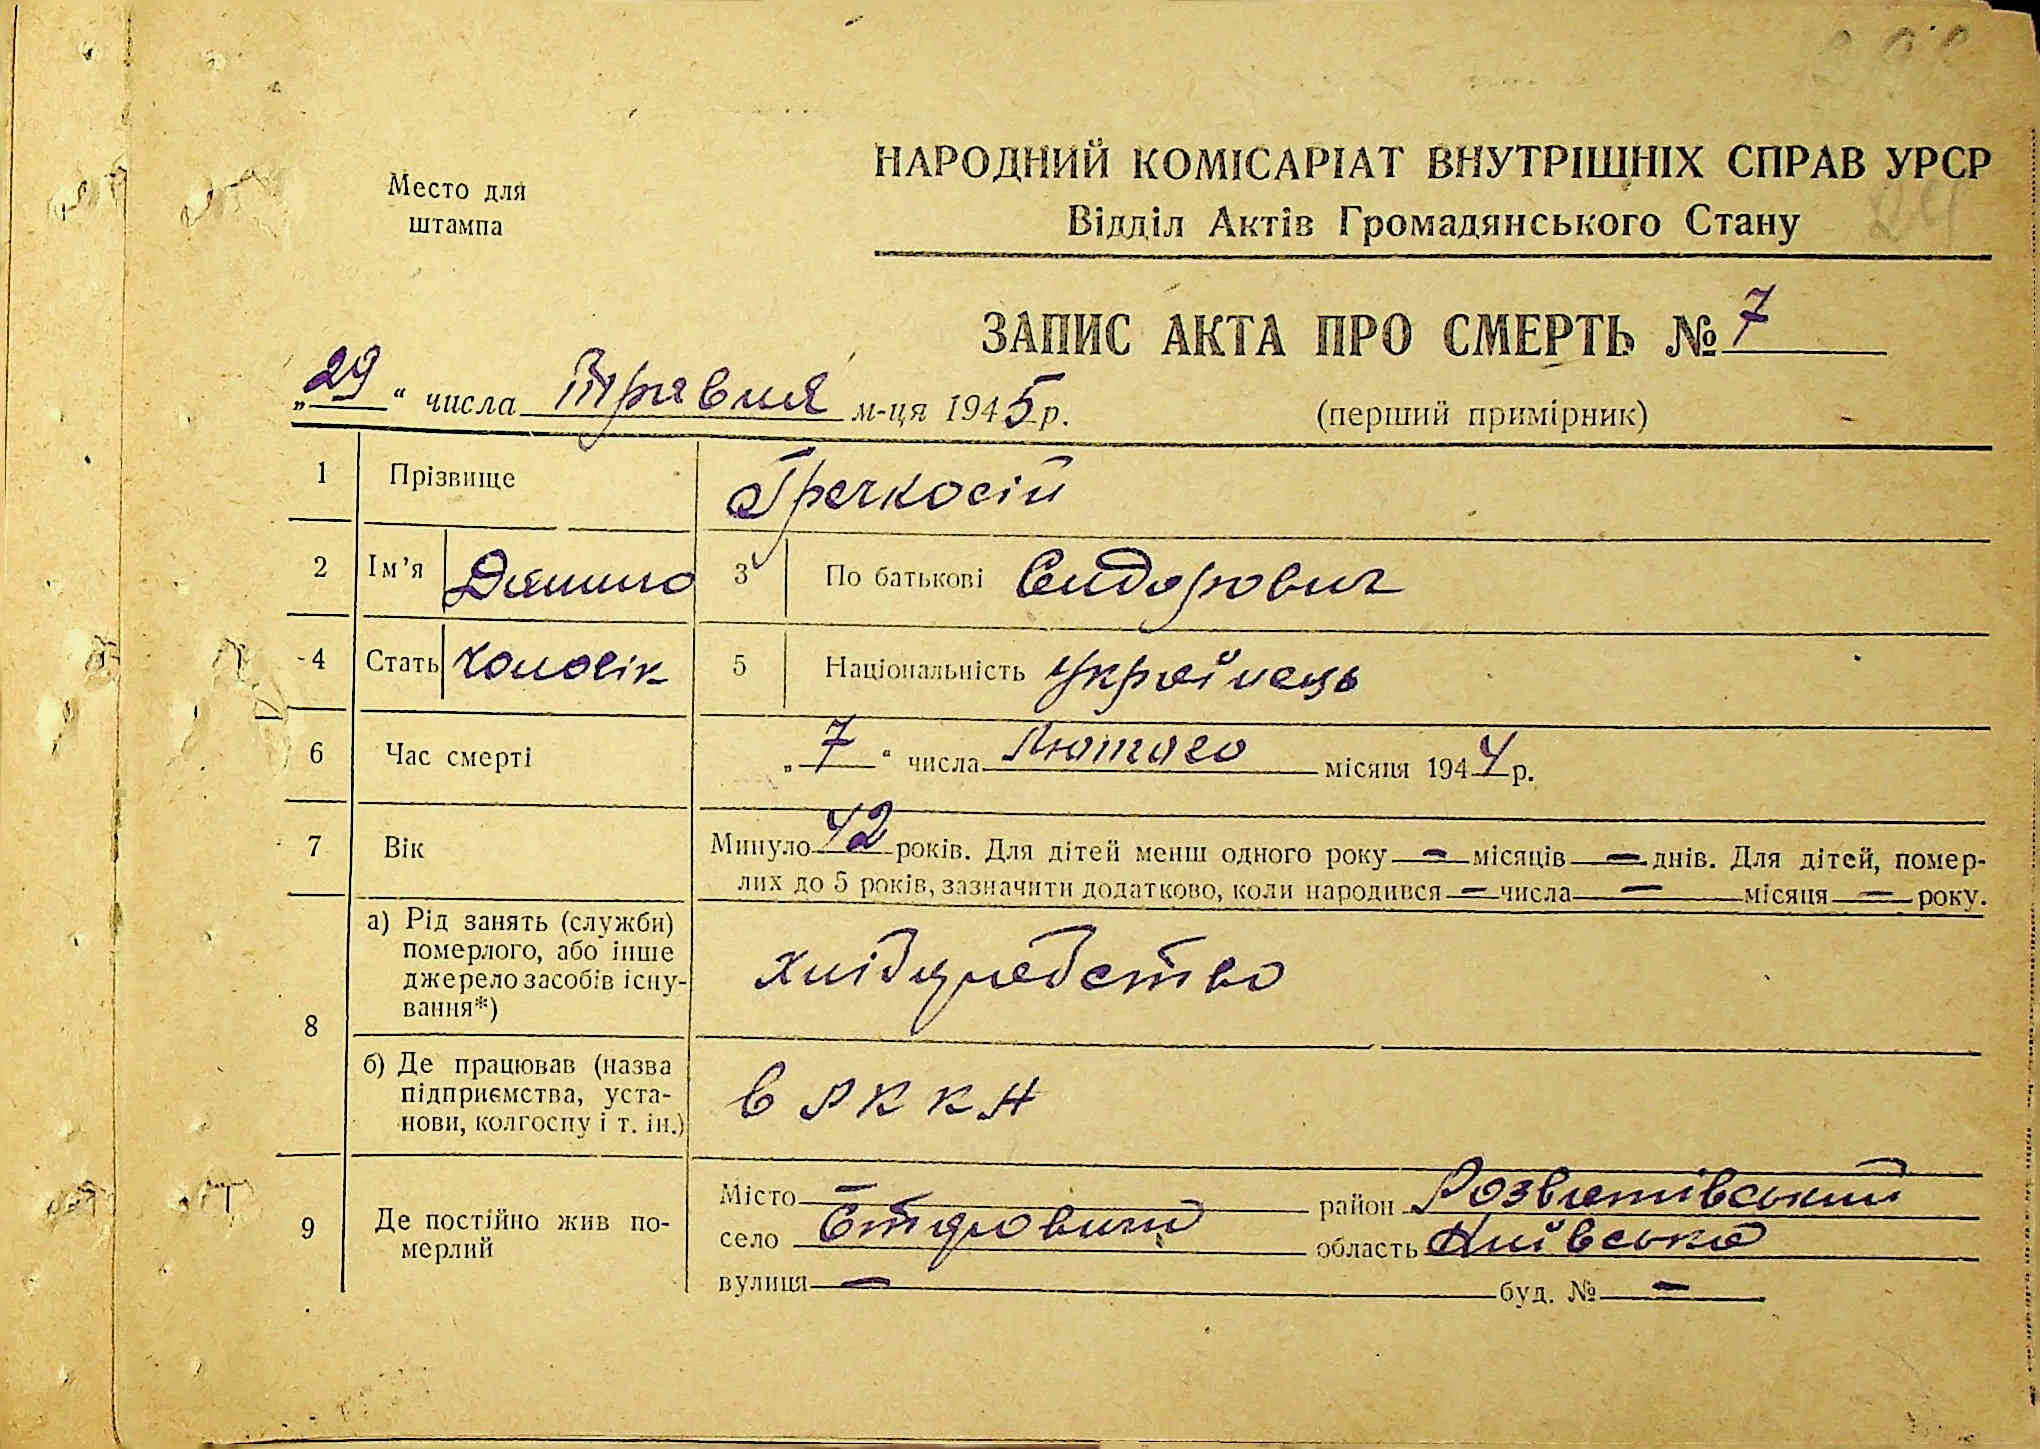 Место для
штампа
НАРОДНИЙ КОМІСАРІАТ ВНУТРІШНІХ СПРАВ УРСР
Відділ Актів Громадянського Стану
ЗАПИС АКТА ПРО СМЕРТЬ № 7
„29“ числа Травня м-ця 1945 р.
(перший примірник)
1 Прізвище Гречкосій
2 Ім’я Данило 3 По батькові Сидорович
4 Стать чоловік 5 Національність українець
6 Час смерті „7“ числа Лютого місяця 1944 р.
7 Вік Минуло 42 років. Для дітей менш одного року — місяців — днів. Для дітей, помер-
лих до 5 років, зазначити додатково, коли народився — числа — місяця — року.
8 а) Рід занять (служби)
померлого, або інше
джерело засобів існу-
вання*)
хлібуробство
б) Де працював (назва
підприємства, уста-
нови, колгоспу і т. ін.)
в РККА
9 Де постійно жив по-
мерлий
Місто — район Розважівський
село область Київська
вулиця — буд. № —